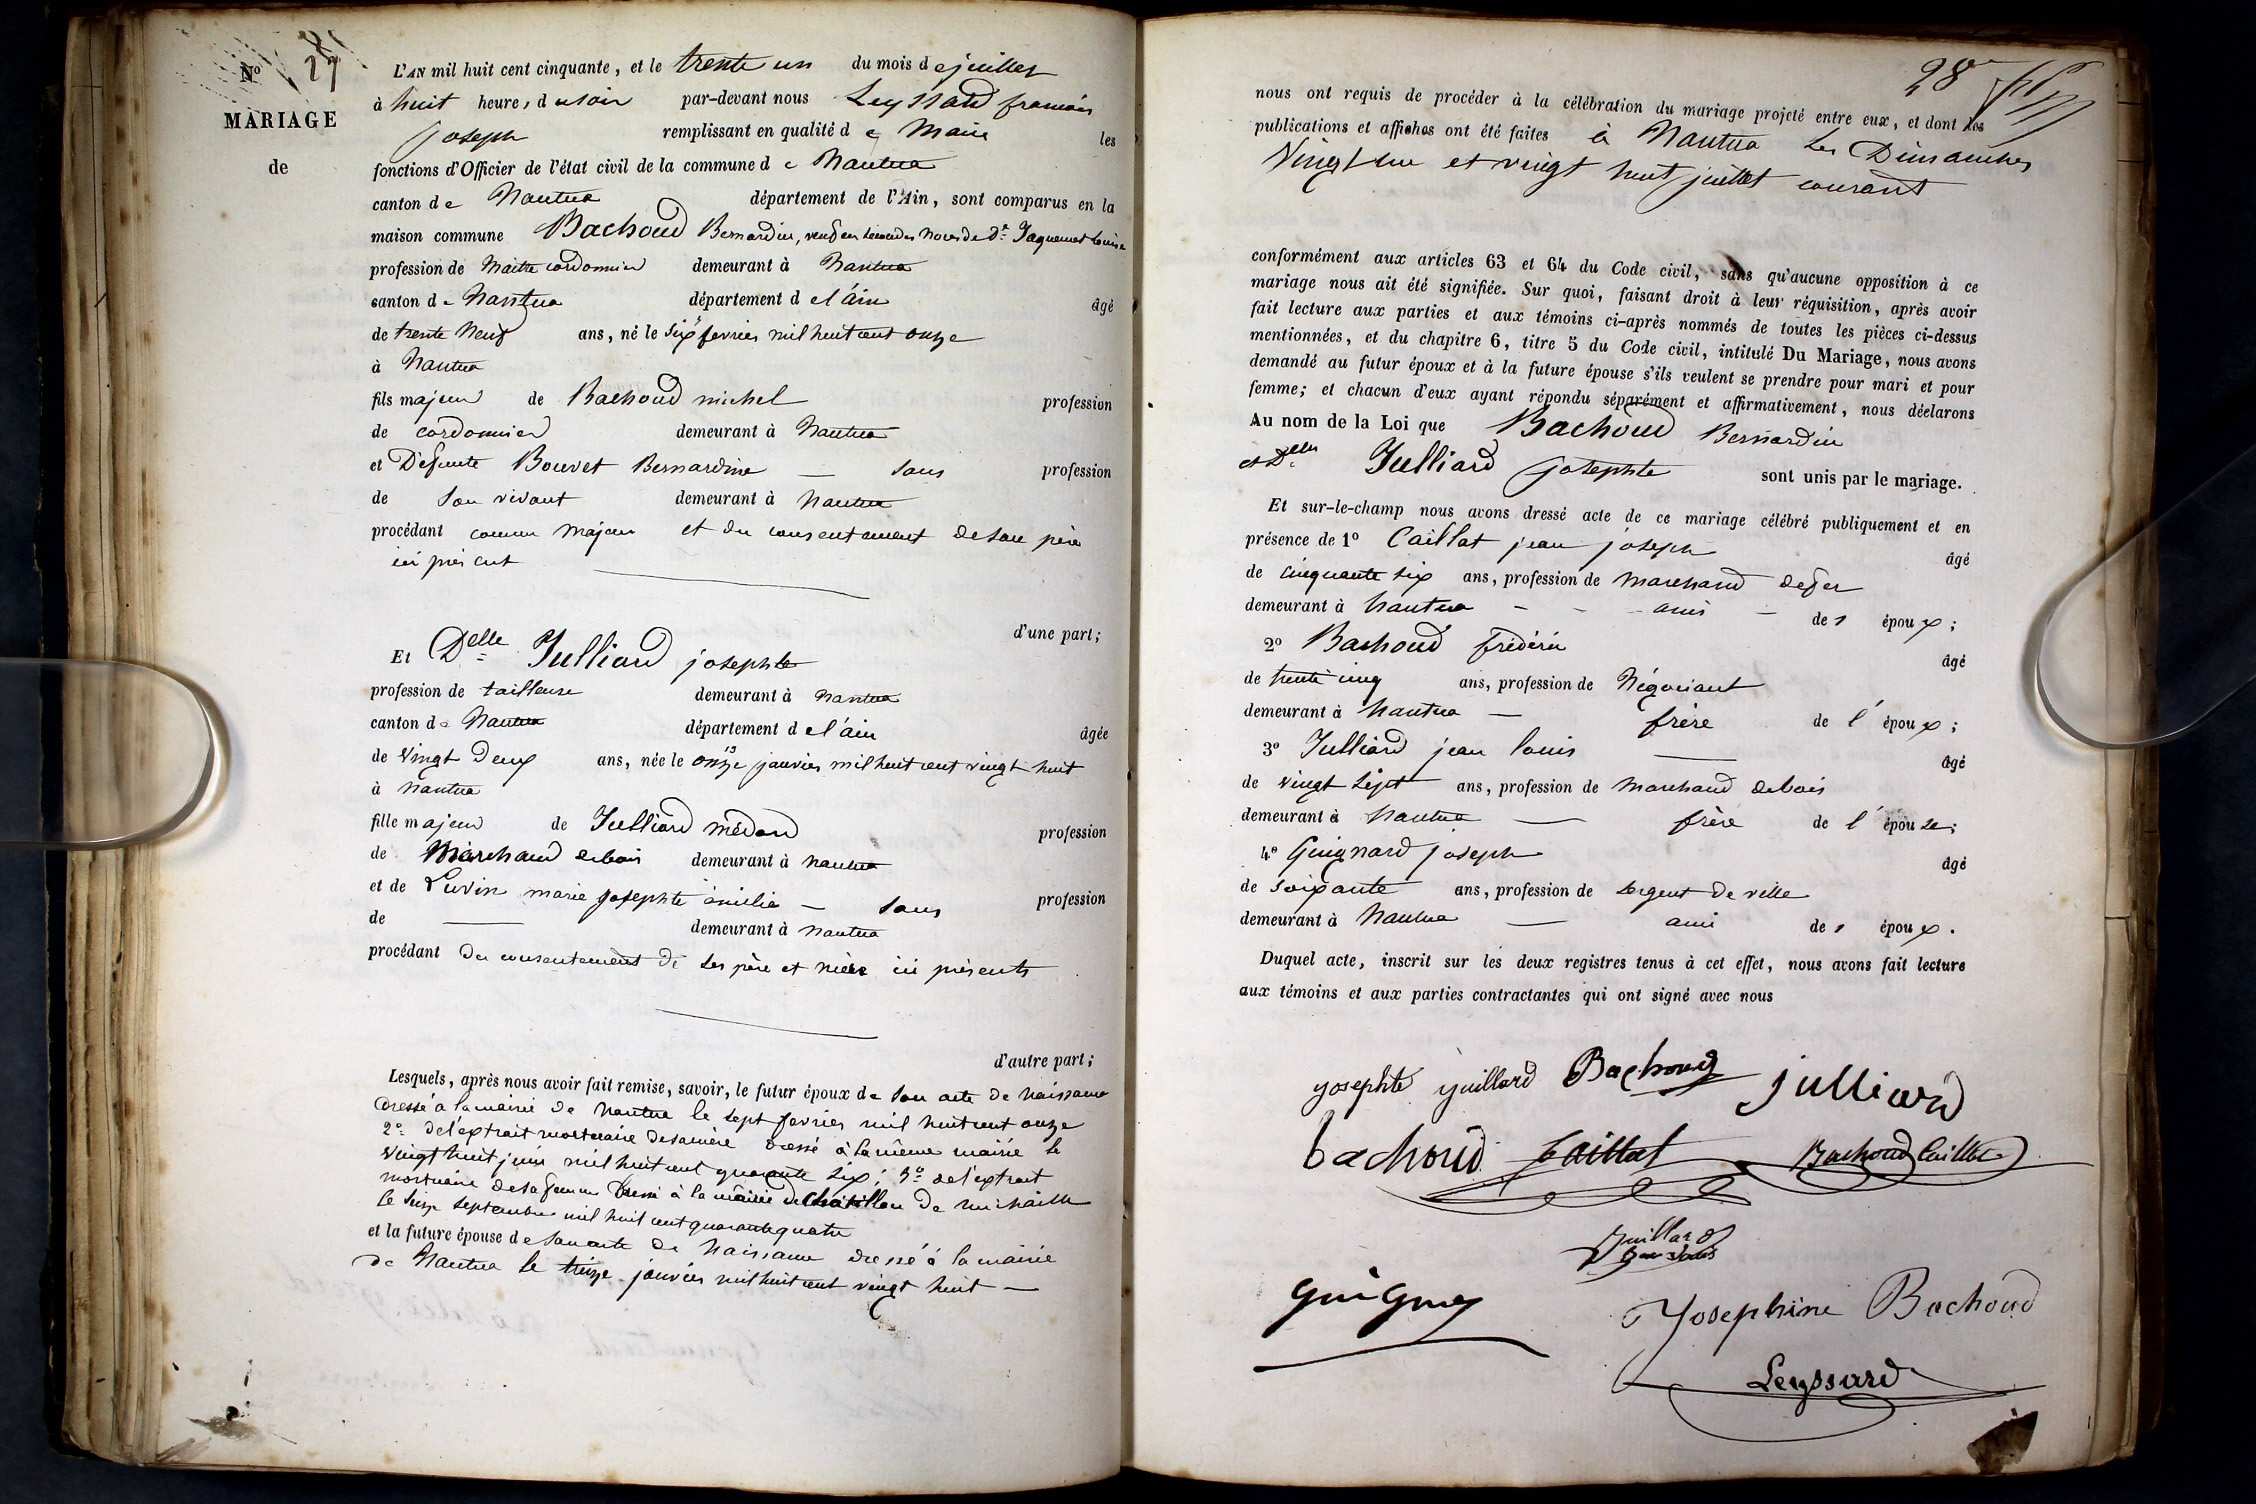 N° 27
MARIAGE
de
L'AN mil huit cent cinquante, et le trente un du mois de juillet
à huit heure, du soir par-devant nous Leyssard françois
joseph remplissant en qualité de Maire les
fonctions d'Officier de l'état civil de la commune de Nantua
canton de Nantua département de l'Ain, sont comparus en la
maison commune Bachoud Bernardin, veuf en secondes noces de De Jaquemet Louise
profession de Maitre cordonnier demeurant à Nantua
canton de Nantua département de l'ain âgé
de trente neuf ans, né le six fevrier mil huit cent onze
à Nantua
fils majeur de Bachoud michel profession
de cordonnier demeurant à Nantua
et Défunte Bouvet Bernardine — sans profession
de son vivant demeurant à Nantua
procédant comme majeur et du consentement de son père
ici présent
d'une part;
Et Delle Julliard josephte
profession de tailleuse demeurant à Nantua
canton de Nantua département de l'ain âgée
de vingt Deux ans, née le onze janvier mil huit cent vingt huit
à Nantua
fille majeur de Julliard médard profession
de Marchand de bois demeurant à nantua
et de marie josephte émilie — sans profession
de — demeurant à nantua
procédant du consentement de ses père et mère ici présents
d'autre part;
Lesquels, après nous avoir fait remise, savoir, le futur époux de son acte de naissance
dressé à la mairie de Nantua le sept fevrier mil huit cent onze
2° de l'extrait mortuaire de sa mère dressé à la même mairie le
vingt huit juin mil huit cent quarante six; 3° de l'extrait
mortuaire de sa femme dressé à la mairie de Châtillon de michaille
le septembre mil huit cent quarante quatre
et la future épouse de son acte de Naissance dressé à la mairie
de Nantua le treize janvier mil huit cent vingt huit —
28
nous ont requis de procéder à la célébration du mariage projeté entre eux, et dont les
publications et affiches ont été faites à Nantua Les Dimanches
Vingt un et vingt huit juillet courant
conformément aux articles 63 et 64 du Code civil, sans qu'aucune opposition à ce
mariage nous ait été signifiée. Sur quoi, faisant droit à leur réquisition, après avoir
fait lecture aux parties et aux témoins ci-après nommés de toutes les pièces ci-dessus
mentionnées, et du chapitre 6, titre 5 du Code civil, intitulé Du Mariage, nous avons
demandé au futur époux et à la future épouse s'ils veulent se prendre pour mari et pour
femme; et chacun d'eux ayant répondu séparément et affirmativement, nous déclarons
Au nom de la Loi que Bachoud Bernardin
et Delle Julliard josephte sont unis par le mariage.
Et sur-le-champ nous avons dressé acte de ce mariage célébré publiquement et en
présence de 1° Caillat jean joseph âgé
de cinquante six ans, profession de marchand de fer
demeurant à Nantua - - amis - des époux;
2° Bachoud frédéric âgé
de trente cinq ans, profession de Négociant
demeurant à Nantua — frère de l'époux;
3° Julliard jean louis — âgé
de vingt sept ans, profession de marchand de bois
demeurant à Nantua — frère de l'épouse;
4° Guignard joseph âgé
de soixante ans, profession de sergent de ville
demeurant à Nantua — ami des époux.
Duquel acte, inscrit sur les deux registres tenus à cet effet, nous avons fait lecture
aux témoins et aux parties contractantes qui ont signé avec nous
yosephte yuillard Bachoud julliard
bachoud Caillat Bachoud Caillat
Juillard
Jean Louis
Josephine Bachoud
Leyssard